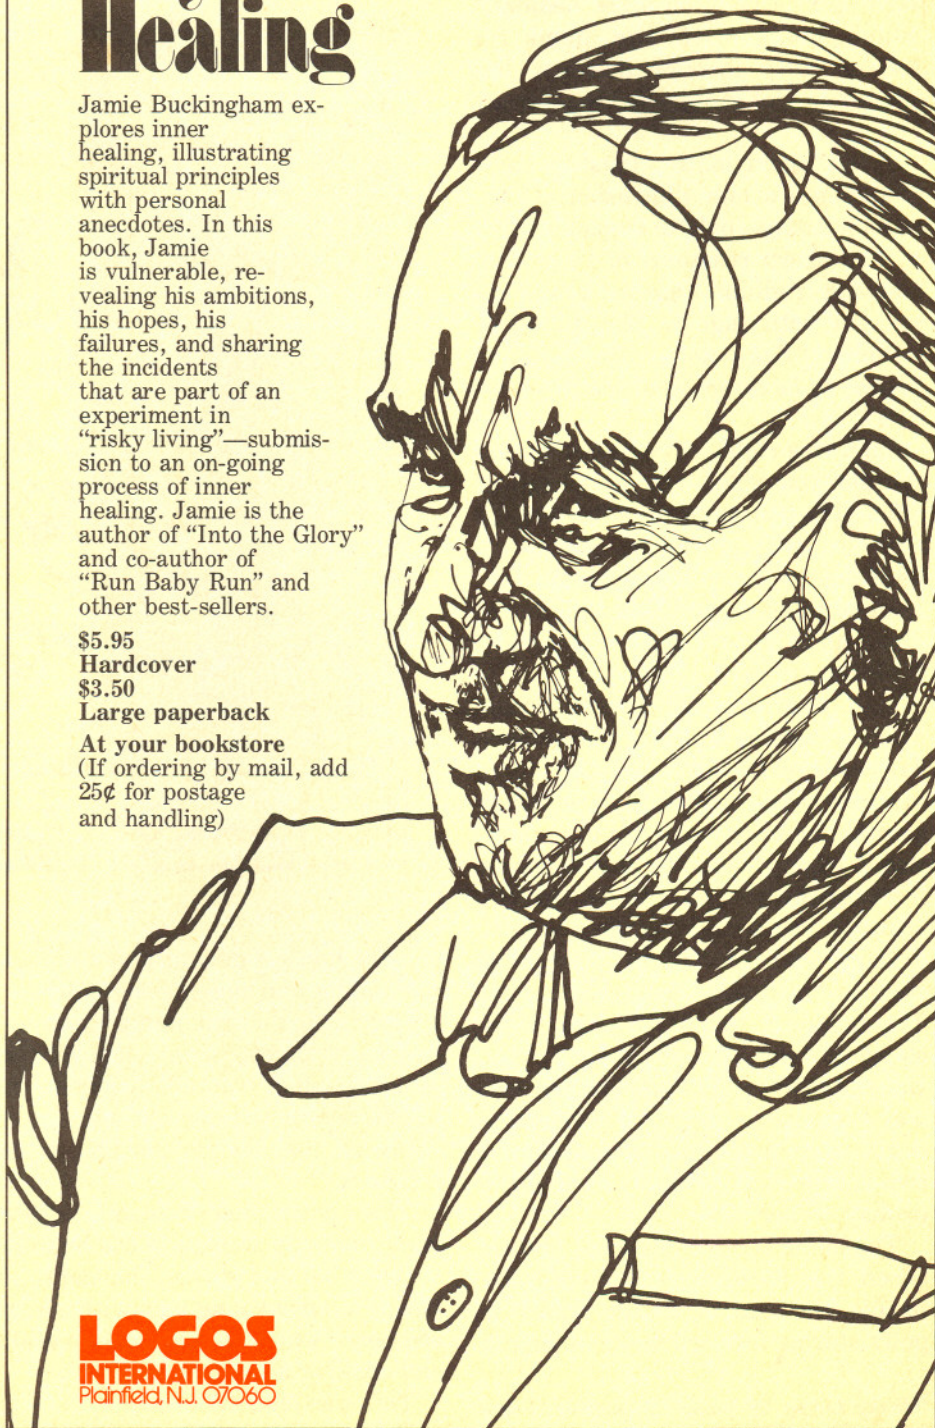 Healing
Jamie Buckingham ex-
plores inner
healing, illustrating
spiritual principles
with personal
anecdotes. In this
book, Jamie
is vulnerable, re-
vealing his ambitions,
his hopes, his
failures, and sharing
the incidents
that are part of an
experiment in
“risky living”—submis-
sion to an on-going
process of inner
healing. Jamie is the
author of “Into the Glory”
and co-author of
“Run Baby Run” and
other best-sellers.
$5.95
Hardcover
$3.50
Large paperback
At your bookstore
(If ordering by mail, add
25¢ for postage
and handling)
LOGOS
INTERNATIONAL
Plainfield, N.J. 07060